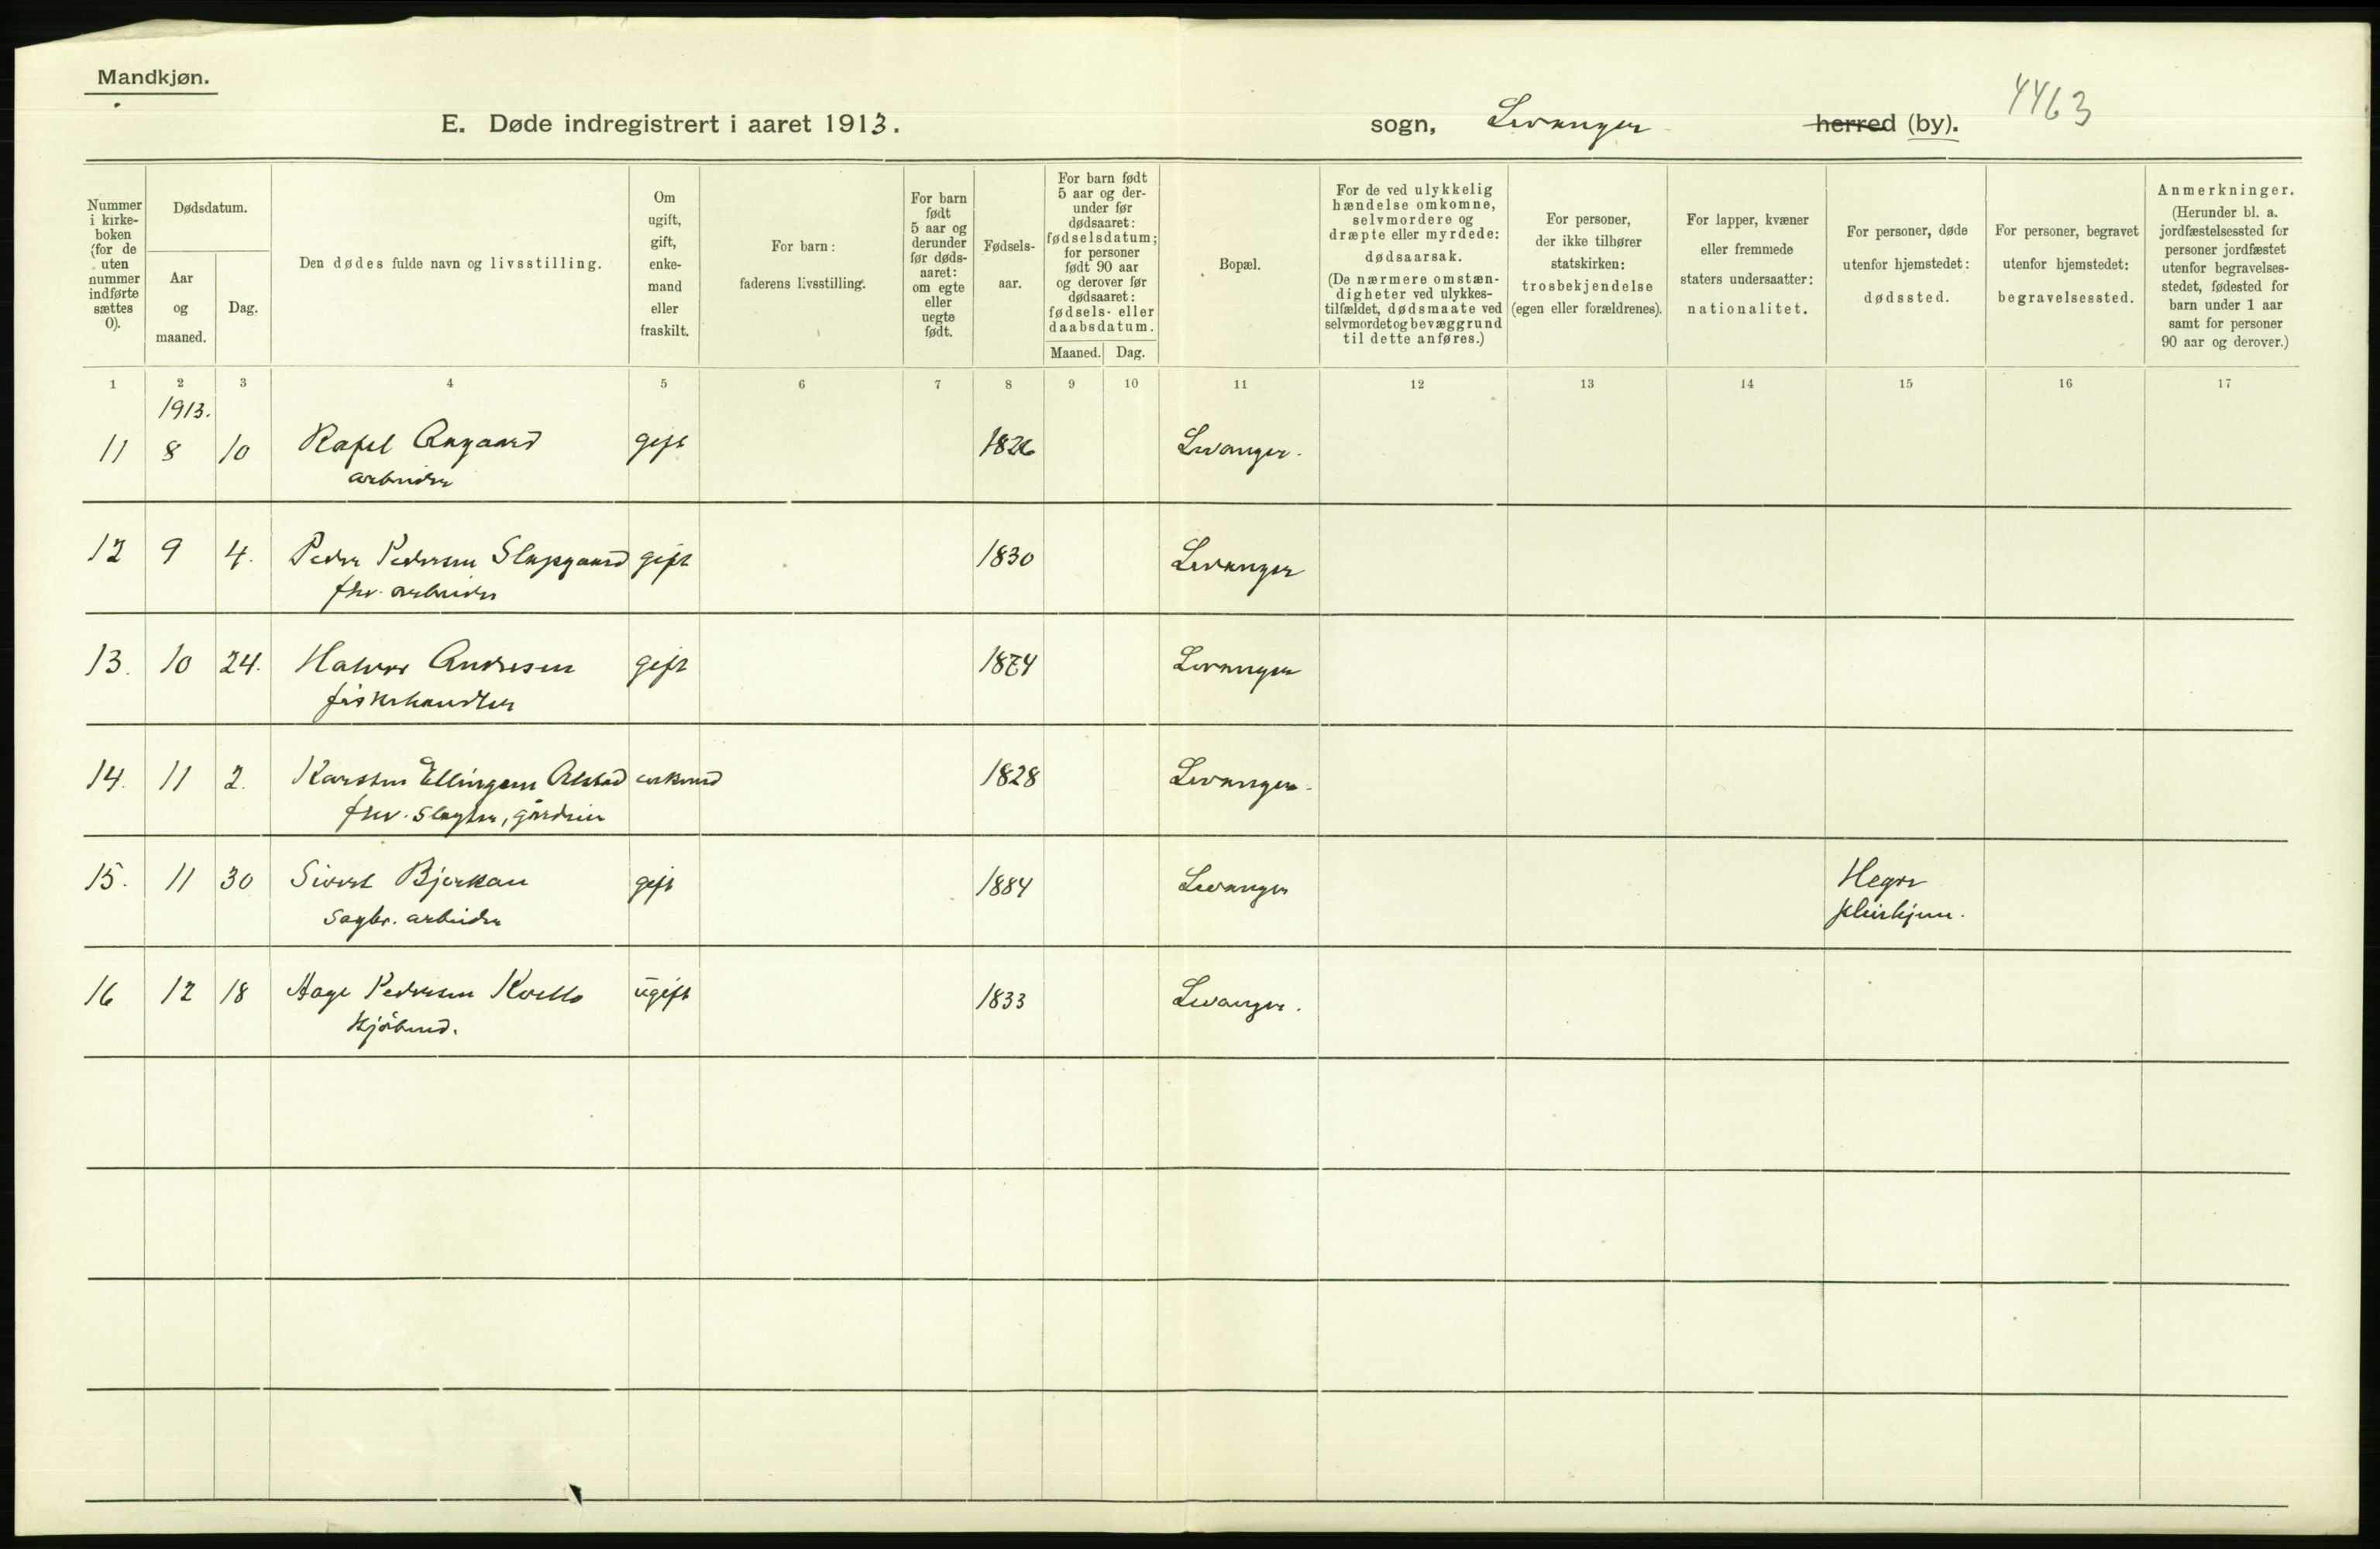 Mandkjøn.
E. Døde indregistrert i aaret 1913.
sogn, Levanger herred (by).
4463
Nummer i kirke- boken (for de uten nummer indførte sættes 0).
Dødsdatum.
Aar og maaned.
Dag.
Den dødes fulde navn og livsstilling.
Om ugift, gift, enke- mand eller fraskilt.
For barn: faderens livsstilling.
For barn født 5 aar og derunder før døds- aaret: om egte eller uegte født.
Fødsels- aar.
For barn født 5 aar og der- under før dødsaaret: fødselsdatum; for personer født 90 aar og derover før dødsaaret: fødsels- eller daabsdatum.
Maaned. Dag.
Bopæl.
For de ved ulykkelig hændelse omkomne, selvmordere og dræpte eller myrdede: dødsaarsak.
(De nærmere omstæn- digheter ved ulykkes- tilfældet, dødsmaate ved selvmordet og bevæggrund til dette anføres.)
For personer, der ikke tilhører statskirken: trosbekjendelse (egen eller forældrenes).
For lapper, kvæner eller fremmede staters undersaatter: nationalitet.
For personer, døde utenfor hjemstedet: dødssted.
For personer, begravet utenfor hjemstedet: begravelsessted.
Anmerkninger.
(Herunder bl. a. jordfæstelsessted for personer jordfæstet utenfor begravelses- stedet, fødested for barn under 1 aar samt for personer 90 aar og derover.)
1 2 3 4 5 6 7 8 9 10 11 12 13 14 15 16 17
1913.
11 8 10 Rafel Aagaard gift 1826 Levanger.
arbeider
12 9 4. Peder Pedersen Slapgaard gift 1830 Levanger
fhv. arbeider
13. 10 24. Halvor Andresen gift 1874 Levanger
fiskehandler
14. 11 2. Karsten Ellingsen Alstad enkemd 1828 Levanger.
fhv. slagter, gårdeier
15. 11 30 Sivert Bjerkan gift 1884 Levanger Hegre
sagbr. arbeider pleiehjem.
16 12 18 Aage Pedersen Kvello ugift 1833 Levanger.
Kjøbmd.